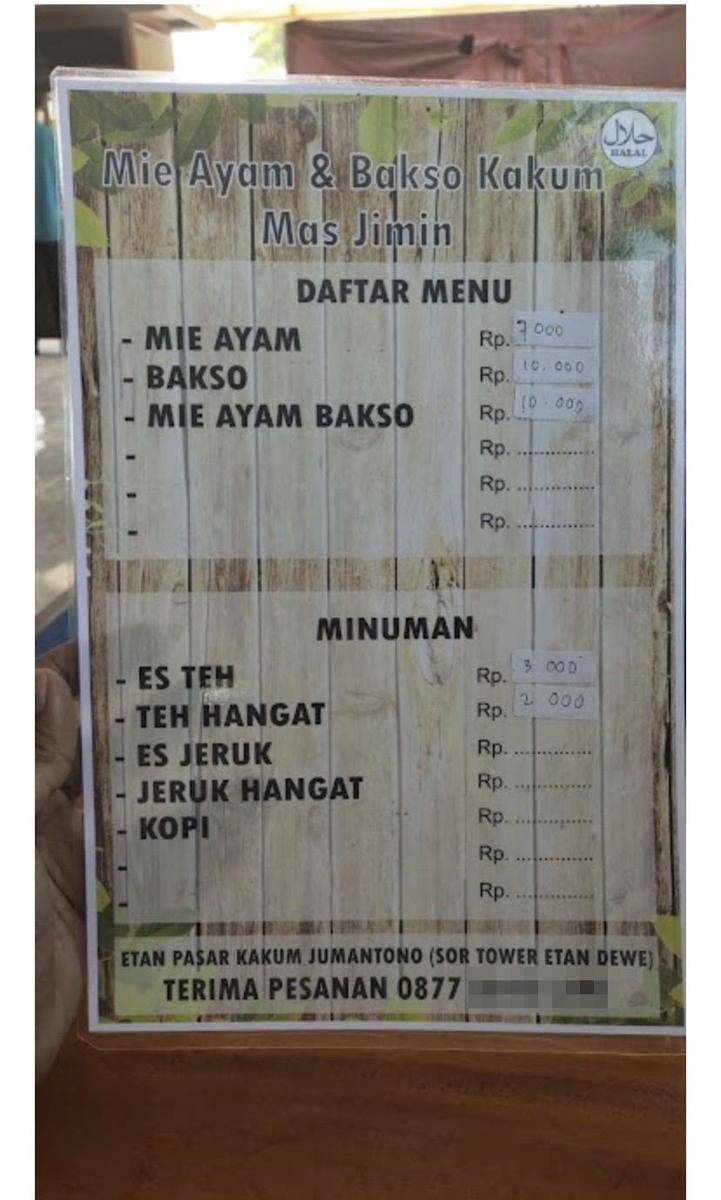 حلال
HALAL
Mie Ayam & Bakso Kakum
Mas Jimin
DAFTAR MENU
- MIE AYAM Rp. 7 000
- BAKSO Rp. 10.000
- MIE AYAM BAKSO Rp. 10.000
- Rp. ..............
- Rp. ..............
- Rp. ..............
MINUMAN
- ES TEH Rp. 3 000
- TEH HANGAT Rp. 2 000
- ES JERUK Rp. ..............
- JERUK HANGAT Rp. ..............
- KOPI Rp. ..............
- Rp. ..............
- Rp. ..............
ETAN PASAR KAKUM JUMANTONO (SOR TOWER ETAN DEWE)
TERIMA PESANAN 0877